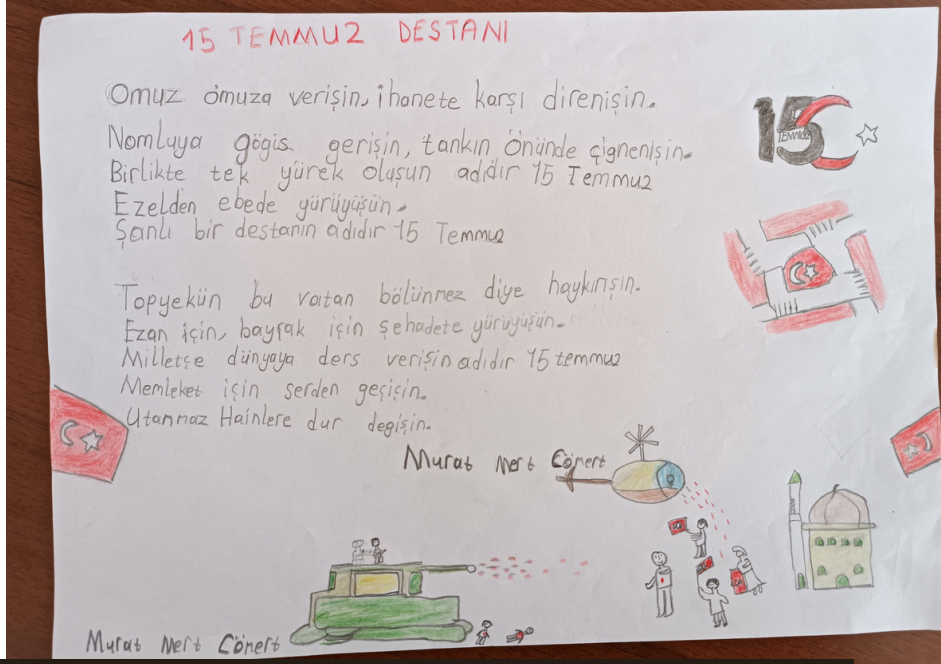 15 TEMMUZ DESTANI
Omuz omuza verişin, ihanete karşı direnişin.
Nomluya göğis gerişin, tankın önünde çignenişin.
Birlikte tek yürek oluşun adıdır 15 Temmuz
Ezelden ebede yürüyüşün.
Şanlı bir destanin adıdır 15 Temmuz
15
TEMMUZ
Topyekün bu vatan bölünmez diye haykırışın.
Ezan için, bayrak için şehadete yürüyüşün.
Milletçe dünyaya ders verişin adıdır 15 temmuz
Memleket için serden geçişin.
Utanmaz Hainlere dur değişin.
Murat Mert Cömert
Murat Mert Cömert